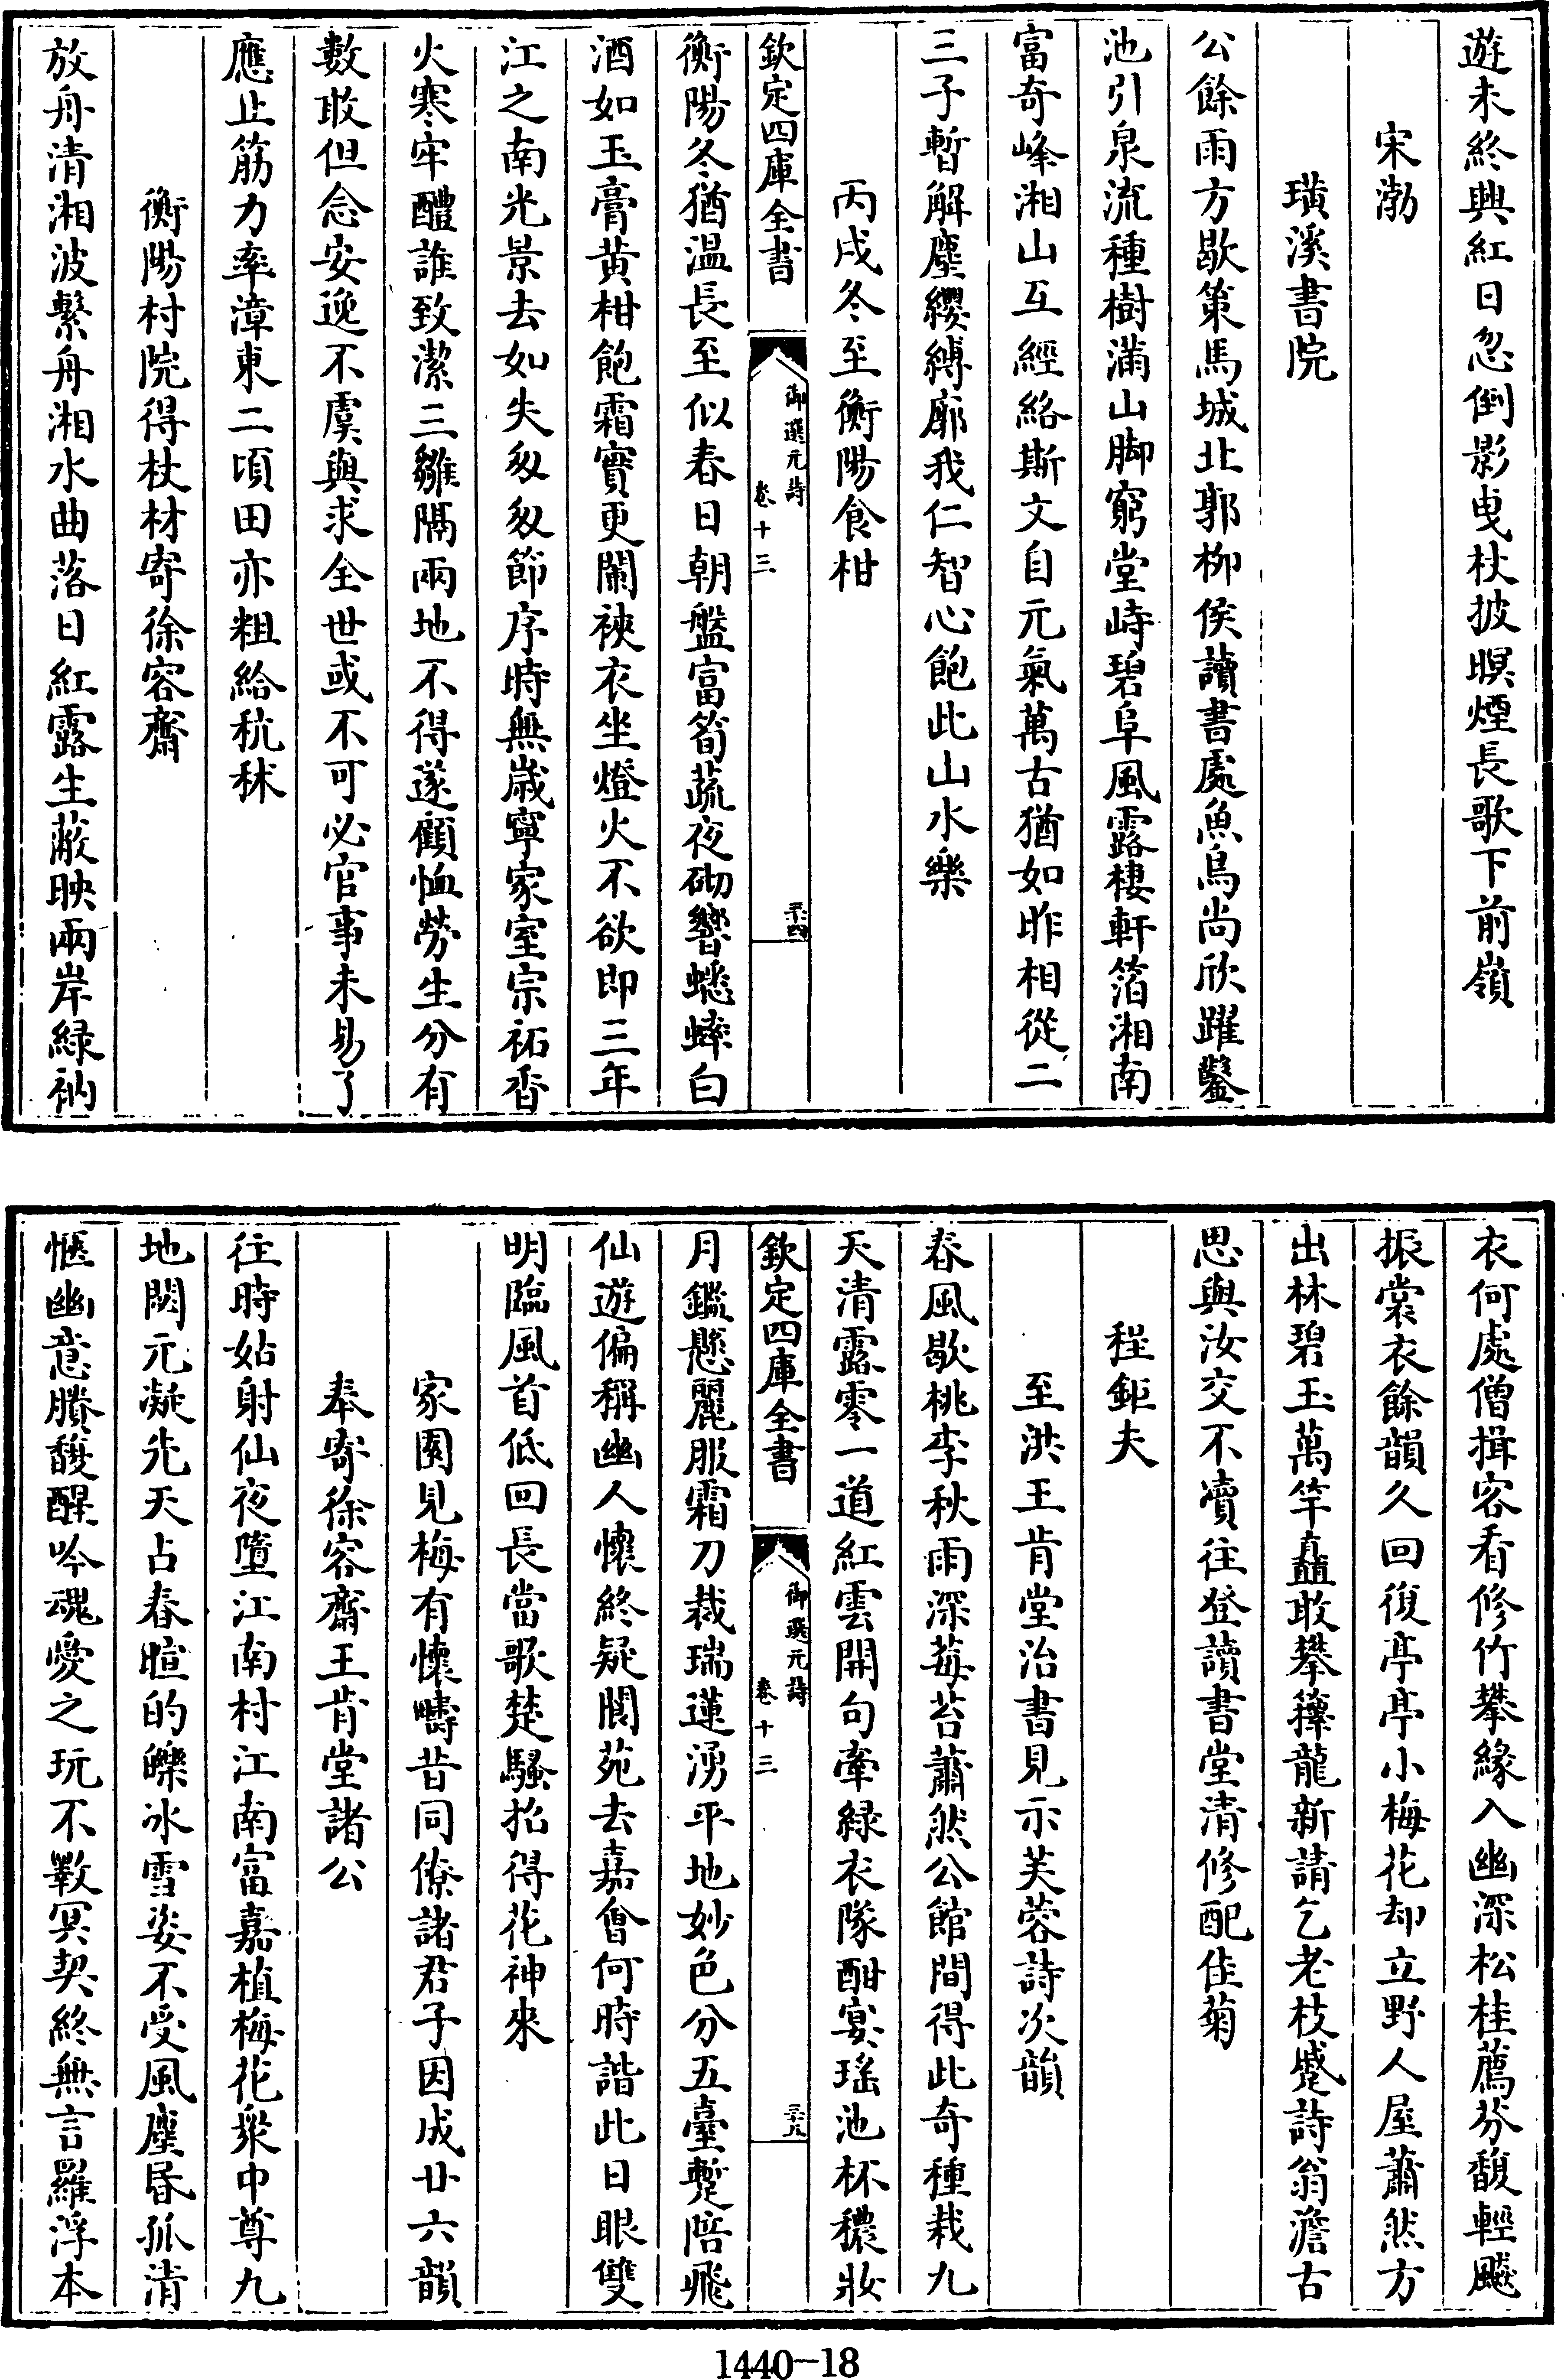 遊未終興紅日忽倒影曳杖披暝煙長歌下前嶺
宋渤
璜溪書院
公餘雨方歇策馬城北郭柳侯讀書處魚鳥尚欣躍鑿
池引泉流種樹滿山脚窮堂峙碧阜風露棲軒箔湘南
富奇峰湘山互經絡斯文自元氣萬古猶如昨相從二
三子暫解塵纓縛廓我仁智心飽此山水樂
丙戌冬至衡陽食柑
欽定四庫全書
御選元詩
卷十三
三十四
衡陽冬猶温長至似春日朝盤富筍蔬夜砌響蟋蟀白
酒如玉膏黄柑飽霜實更闌裌衣坐燈火不欲即三年
江之南光景去如失匆匆節序時無歲寧家室宗祏香
火寒牢醴誰致潔三雛隔兩地不得遂顧恤勞生分有
數敢但念安逸不虞與求全世或不可必官事未易了
應止筋力率漳東二頃田亦粗給秔秫
衡陽村院得杖材寄徐容齋
放舟清湘波繫舟湘水曲落日紅露生蔽映兩岸緑衲
衣何處僧揖客看修竹攀緣入幽深松桂薦芬馥輕飇
振裳衣餘韻久回復亭亭小梅花却立野人屋蕭然方
出林碧玉萬竿矗敢攀籜龍新請乞老枝蹙詩翁澹古
思與汝交不瀆往登讀書堂清修配佳菊
程鉅夫
至洪王肯堂治書見示芙蓉詩次韻
春風歇桃李秋雨深莓苔蕭然公館間得此奇種栽九
天清露零一道紅雲開句牽緑衣隊酣宴瑤池杯穠妝
欽定四庫全書
御選元詩
卷十三
月鑑懸麗服霜刀裁瑞蓮湧平地妙色分五臺暫陪飛
仙遊偏稱幽人懷終疑閬苑去嘉會何時諧此日眼雙
明臨風首低回長當歌楚騷招得花神來
家園見梅有懷疇昔同僚諸君子因成廿六韻
奉寄徐容齋王肯堂諸公
往時姑射仙夜墮江南村江南富嘉植梅花衆中尊九
地閟元凝先天占春暄的皪冰雪姿不受風塵昏孤清
愜幽意賸馥醒吟魂愛之玩不斁冥契終無言羅浮本
1440—18